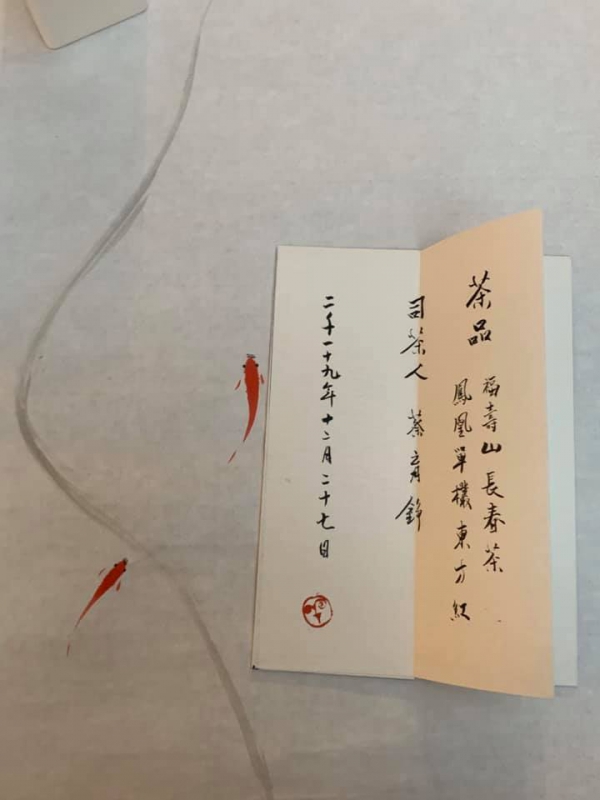 茶品 福壽山長春茶
鳳凰單欉東方紅
司茶人 蔡育錚
二千一十九年十二月二十七日